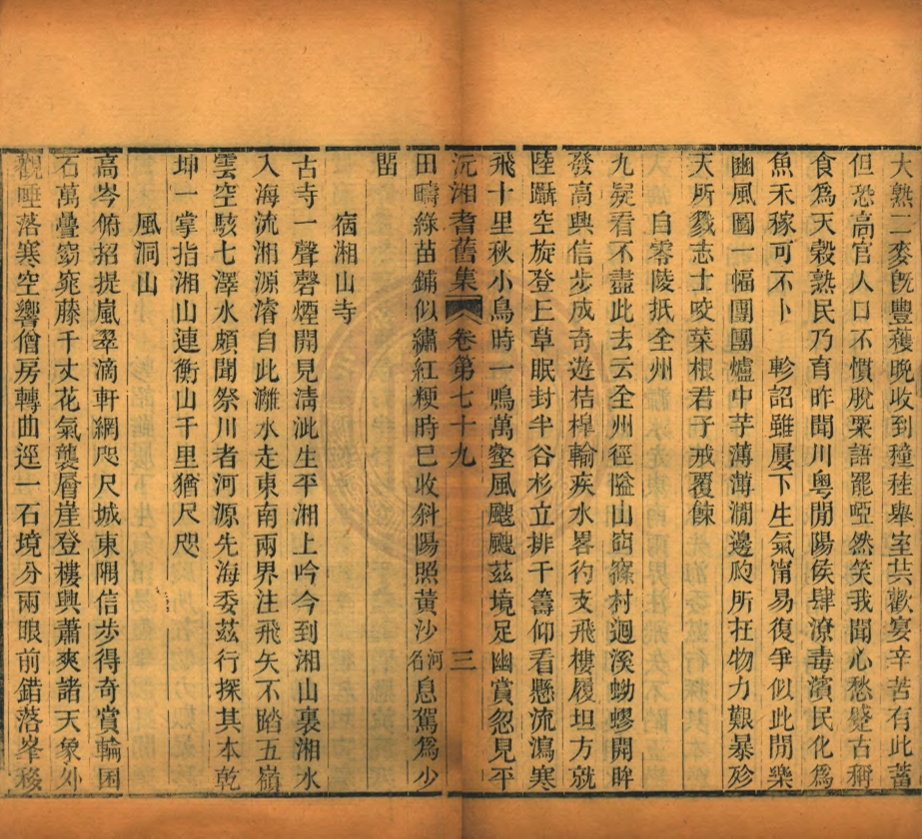 大熟二麥旣豐穫晚收到穜稑舉室共歡宴辛苦有此蓄
但恐高官人口不慣脫粟語罷啞然笑我聞心愁蹙古稱
食爲天穀熟民乃育昨聞川粵閒陽侯肆潦毒濱民化爲
魚禾稼可不卜 軫詔雖屢下生氣甯易復爭似此閒樂
豳風圖一幅團團爐中芋薄薄澗邊肑所在物力艱暴殄
天所戮志士咬菜根君子戒覆餗
自零陵抵全州
九疑看不盡此去云全州徑隘山窞篠村迴溪蚴蟉開眸
發高興信步成奇遊桔槹輸疾水畧彴支飛樓履坦方就
陸躡空旋登丘草眠封半谷杉立排千籌仰看懸流瀉寒
飛十里秋小鳥時一鳴萬壑風颼颼茲境足幽賞忽見平
沅湘耆舊集 卷第七十九 三
田疇綠苗鋪似繡紅粳時巳收斜陽照黃沙河名息駕爲少
畱
宿湘山寺
古寺一聲磬煙開見淸泚生平湘上吟今到湘山裏湘水
入海流湘源濬自此灕水走東南兩界注飛矢不踏五嶺
雲空駭七澤水頗聞祭川者河源先海委茲行探其本乾
坤一掌指湘山連衡山千里猶尺咫
風洞山
高岑俯招提嵐翠滴軒網咫尺城東隅信步得奇賞輪囷
石萬疊窈窕藤千丈花氣襲層崖登樓興蕭爽諸天象外
觀睡落寒空響僧房轉曲逕一石境分兩眼前錯落峯移